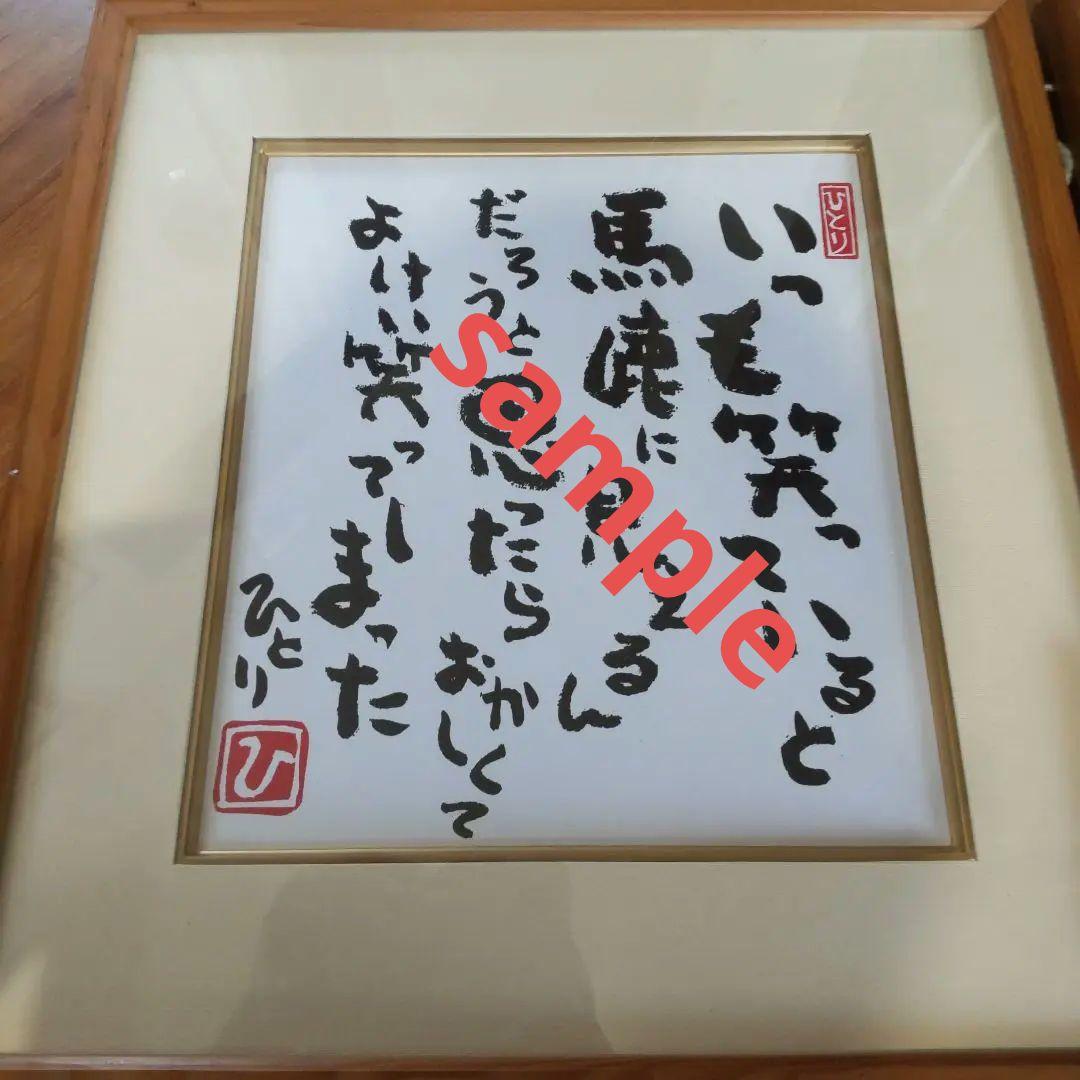 ひとり
いつも笑っていると
馬鹿に見えるん
だろうと思ったらおかしくて
よけい笑ってしまった
ひとり
ひ
sample